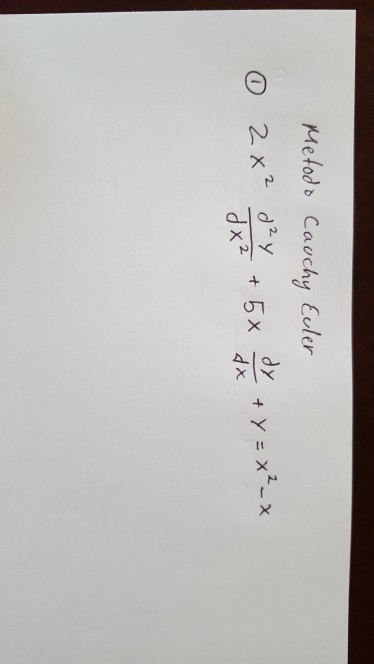 Metodo Cauchy Euler
① 2x² d²y/dx² + 5x dy/dx + y = x² - x